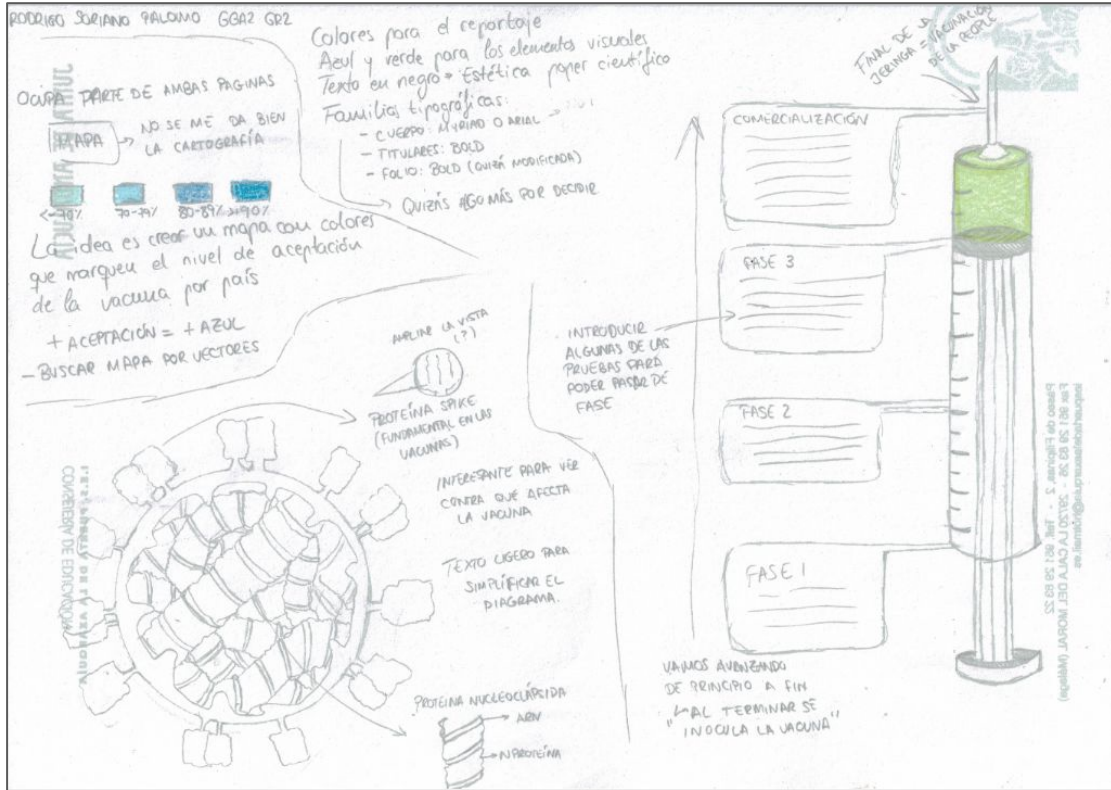 RODRIGO SORIANO PALOMO GGA2 GR2
OCUPA PARTE DE AMBAS PAGINAS
MAPA
NO SE ME DA BIEN
LA CARTOGRAFÍA
70-79% 80-89% >90%
La idea es crear un mapa con colores
que marquen el nivel de aceptación
de la vacuna por país
+ ACEPTACIÓN = + AZUL
- BUSCAR MAPA POR VECTORES
Colores para el reportaje
Azul y verde para los elementos visuales
Texto en negro = Estética paper científico
Familias tipográficas:
- CUERPO: MYRIAD O ARIAL
- TITULARES: BOLD
- FOLIO: BOLD (QUIZÁ MODIFICADA)
QUIZÁS ALGO MÁS POR DECIDIR
AMPLIAR LA VISTA
(?)
PROTEÍNA SPIKE
(FUNDAMENTAL EN LAS
VACUNAS)
INTERESANTE PARA VER
CONTRA QUÉ AFECTA
LA VACUNA
TEXTO LIGERO PARA
SIMPLIFICAR EL
DIAGRAMA.
PROTEINA NUCLEOCLÁPSIDA
ARN
N PROTEÍNA
FINAL DE LA
JERINGA = VACUNACIÓN
DE LA PEOPLE
COMERCIALIZACIÓN
FASE 3
INTRODUCIR
ALGUNAS DE LAS
PRUEBAS PARA
PODER PASAR DE
FASE
FASE 2
FASE 1
VAMOS AVANZANDO
DE PRINCIPIO A FIN
"AL TERMINAR SE
INOCULA LA VACUNA"
CONSEJERÍA DE EDUCACIÓN
Paseo de Filipinas, 2 - Telf. 951 29 83 22
Fax 951 29 83 26 - 29720 LA CALA DEL MORAL (Málaga)